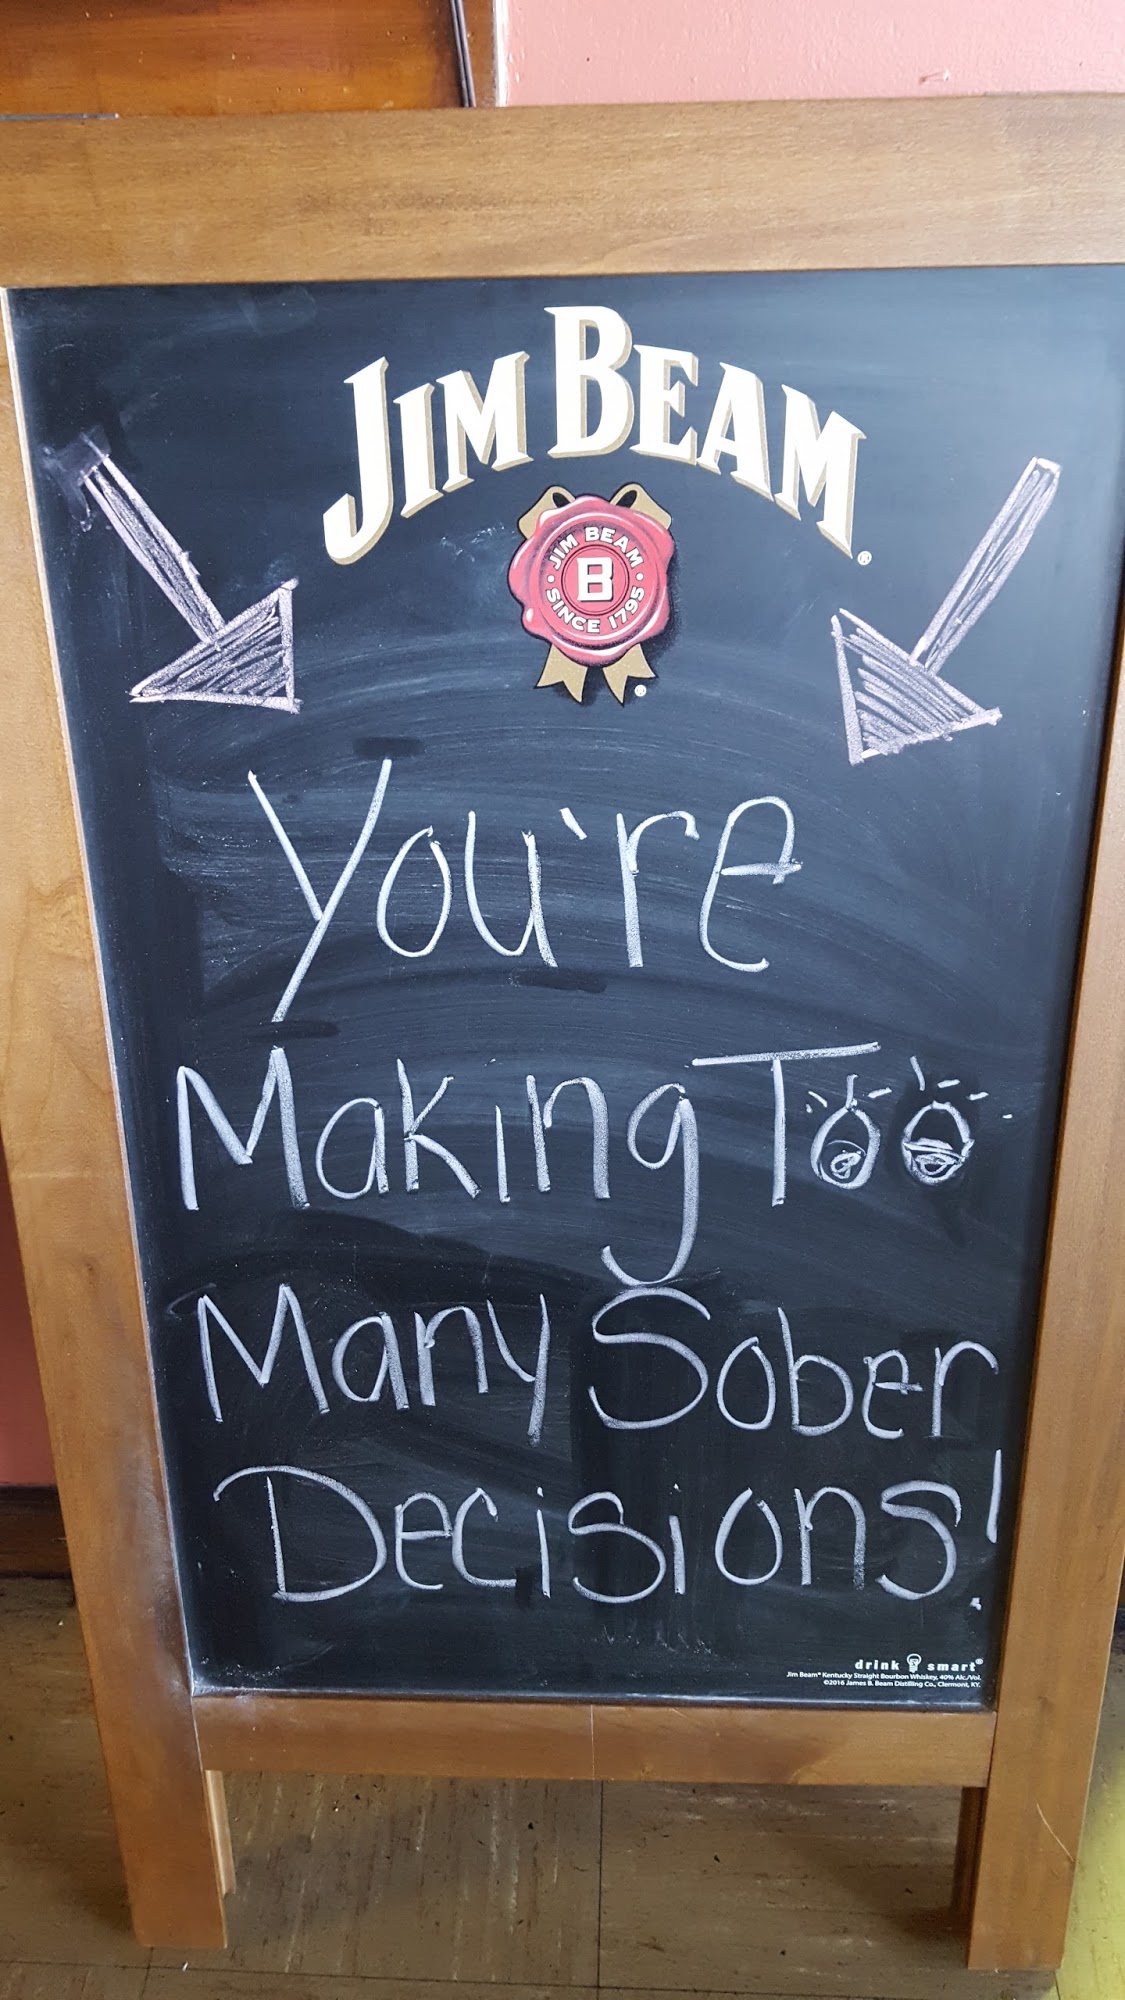 JIM BEAM®
JIM BEAM
B
SINCE 1795
®
You're
Making Too
Many Sober
Decisions!
drink smart®
Jim Beam® Kentucky Straight Bourbon Whiskey, 40% Alc./Vol.
©2016 James B. Beam Distilling Co., Clermont, KY.